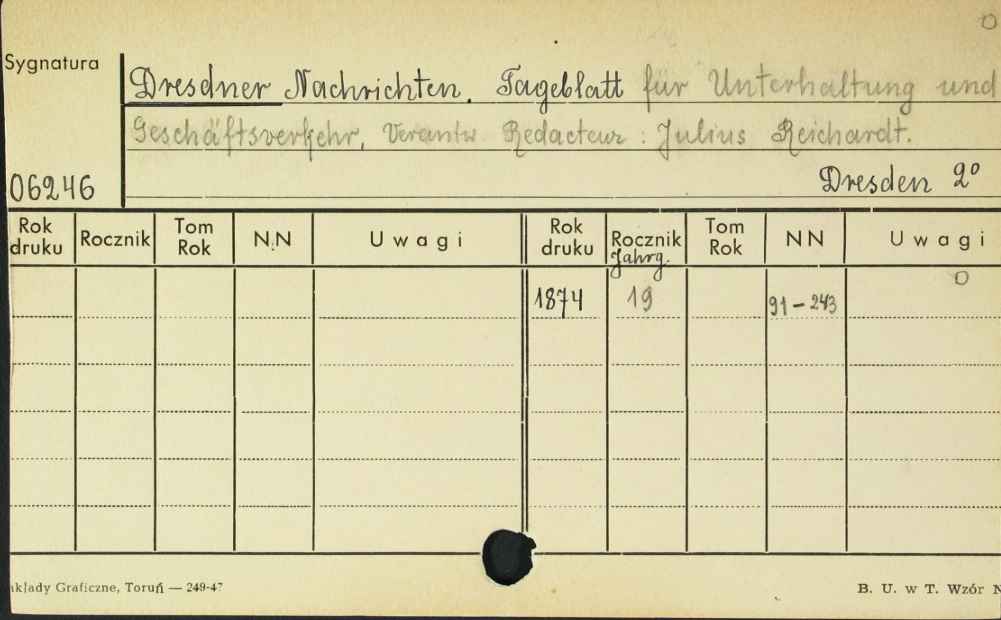 Sygnatura
Dresdner Nachrichten. Tageblatt für Unterhaltung und
Geschäftsverkehr, Verantw. Redacteur: Julius Reichardt.
06246
Dresden 2º
Rok druku Rocznik Tom Rok N.N Uwagi Rok druku Rocznik Jahrg. Tom Rok NN Uwagi
1874 19 91-243
akłady Graficzne, Toruń — 249-47
B. U. w T. Wzór N